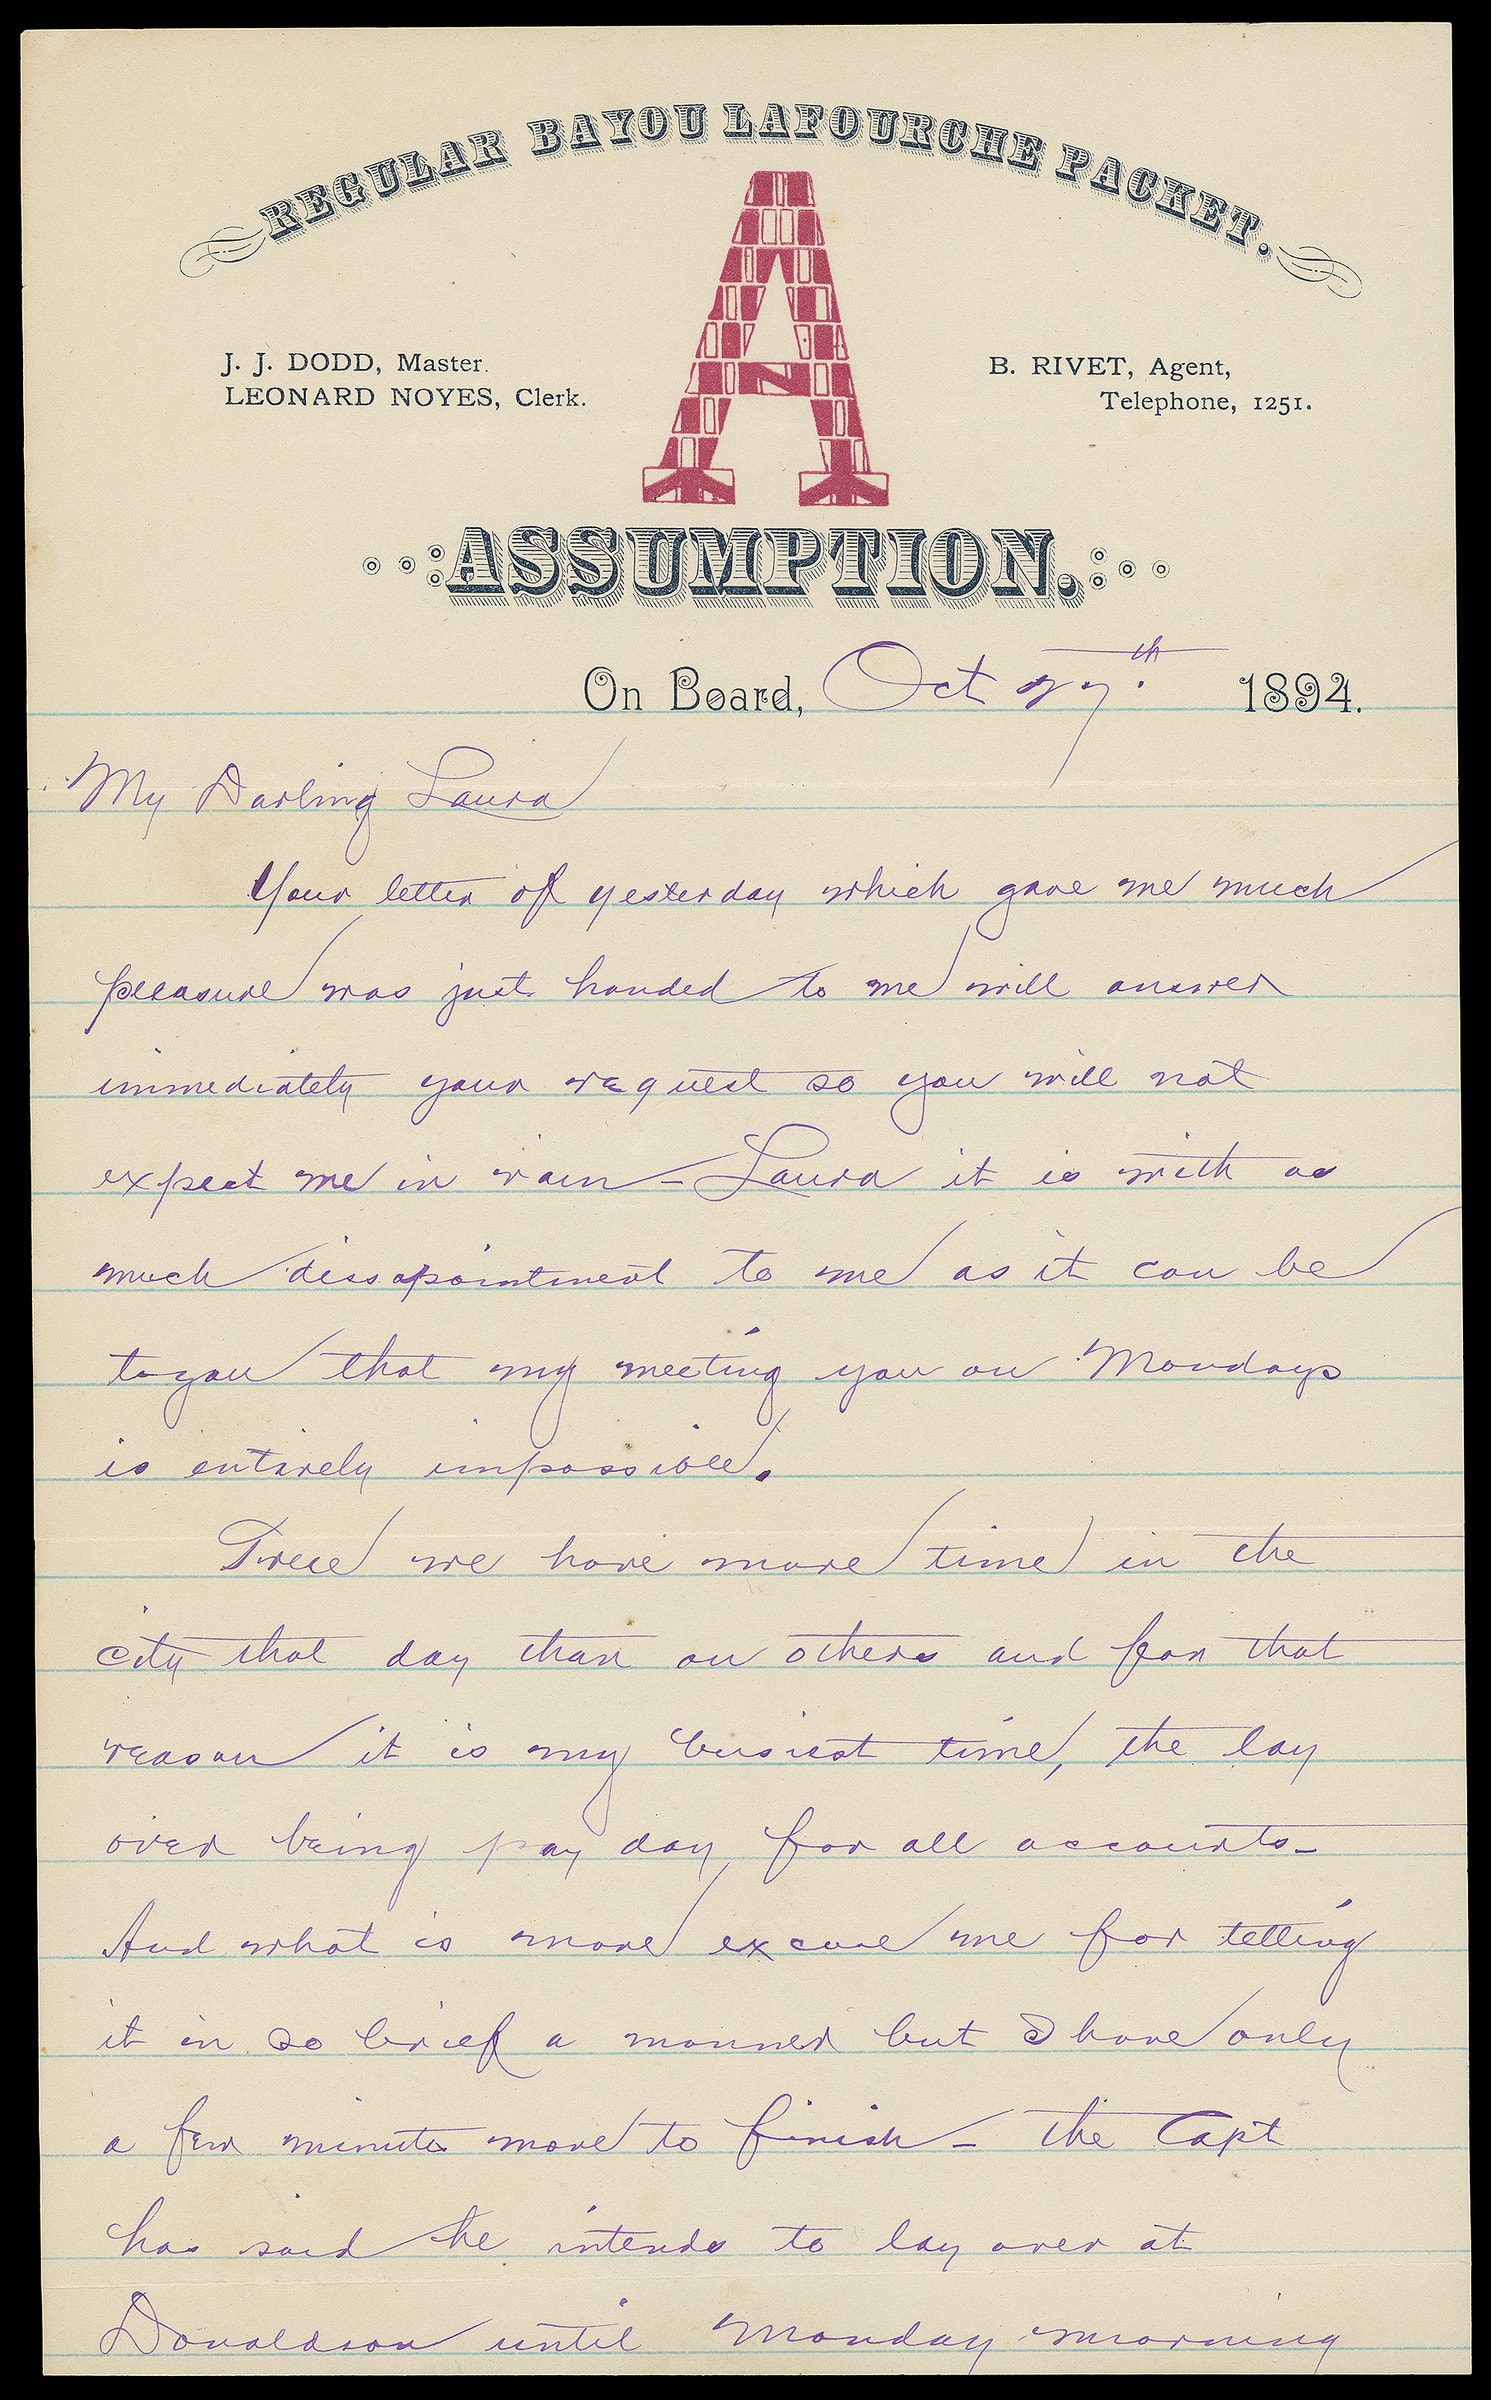 REGULAR BAYOU LAFOURCHE PACKET.
A
J. J. DODD, Master.
LEONARD NOYES, Clerk.
B. RIVET, Agent,
Telephone, 1251.
ASSUMPTION.
On Board, Oct 27th. 1894.
My Darling Laura
Your letter of yesterday which gave me much
pleasure was just handed to me will answer
immediately your request so you will not
expect me in vain - Laura it is with as
much dissapointment to me as it can be
to you that my meeting you on Mondays
is entirely impossible.
True we have more time in the
city that day than on others and for that
reason it is my busiest time, the lay
over being pay day for all accounts -
And what is more excuse me for telling
it in so brief a manner but I have only
a few minutes more to finish - the Capt
has said he intends to lay over at
Donaldson until Monday morning